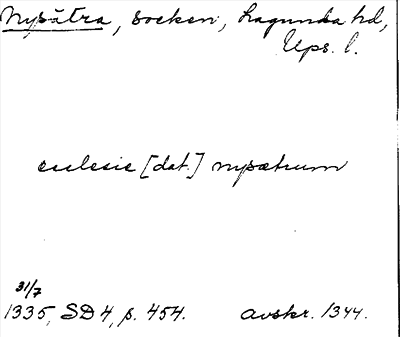 Nysätra, socken, Lagunda hd,
Ups. l.
ecclesie [dat.] nysætrum
31/7
1335, SD 4, p. 454. avskr. 1344.